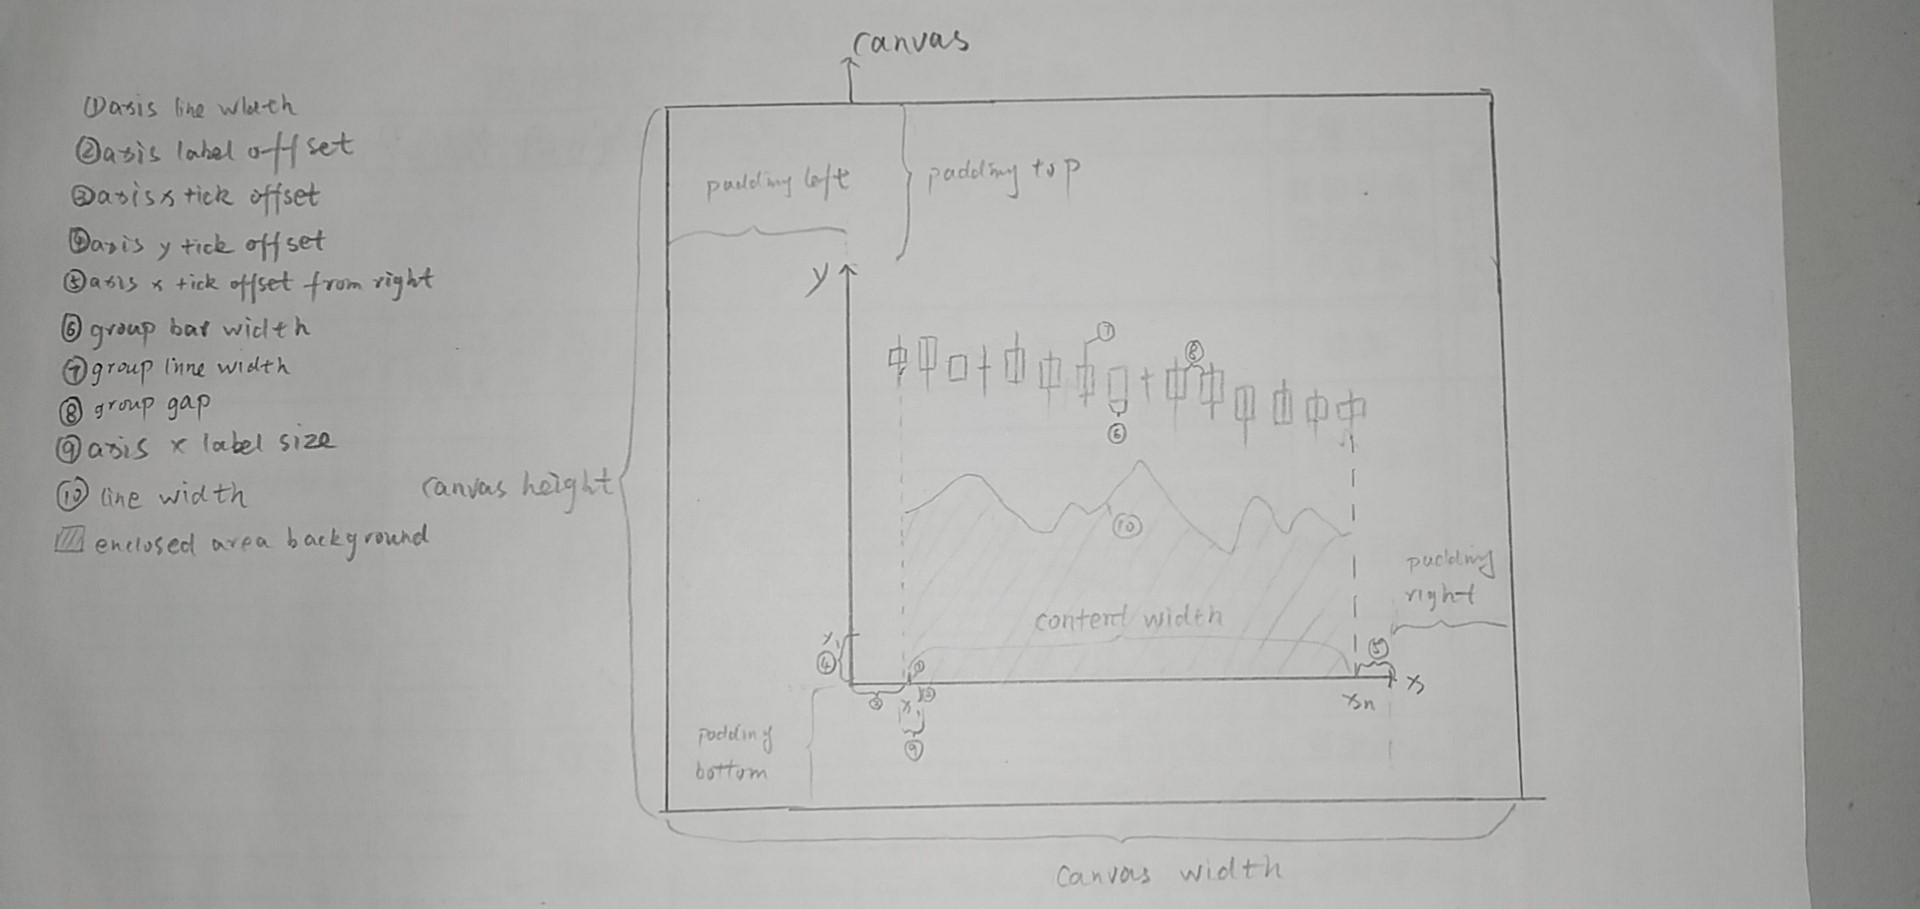 canvas
①axis line width
②axis label offset
③axis x tick offset
④axis y tick offset
⑤axis x tick offset from right
⑥ group bar width
⑦ group linne width
⑧ group gap
⑨ axis x label size
⑩ line width
enclosed area background
canvas height
padding left
padding top
y
⑦
⑧
⑥
⑩
padding
right
content width
④
①
⑤
③
②
x
xn
⑨
padding
bottom
canvas width